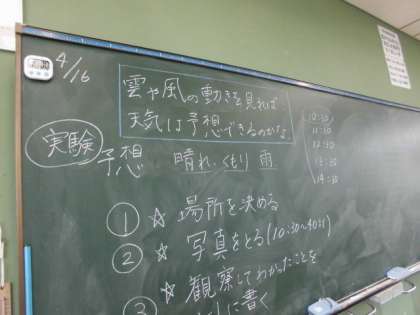 4/16
雲や風の動きを見れば
天気は予想できるのかな
実験
予想 晴れ、くもり 雨
10:30
11:30
12:30
13:30
14:30
① ☆ 場所を決める
② ☆ 写真をとる(10:30~40分)
☆ 観察してわかったことを
③
に書く